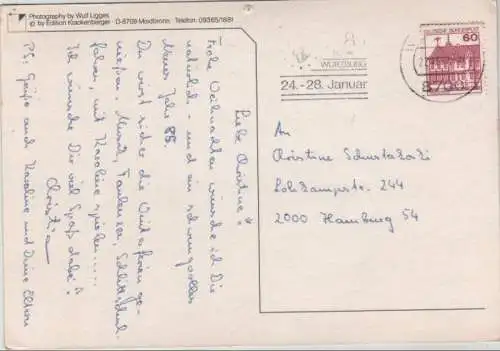 Photography by Wulf Ligges
© by Edition Krackenberger · D-8709 Maidbronn. Telefon: 09365/1681
DEUTSCHE BUNDESPOST
60
WÜRZBURG
24.-28. Januar
An
Christine
2000 Hamburg 54
Liebe Christine!
Frohe Weihnachten wünsche ich Dir
natürlich - und ein schwungvolles
Neues Jahr 88.
Du wirst sicher die Winterferien ge-
niessen. Musik, Faulenzen, Schlittschuh-
fahren, mit Karoline spielen....
Ich wünsche Dir viel Spaß dabei!
Christa
PS. Grüße an Karoline und Deine Eltern